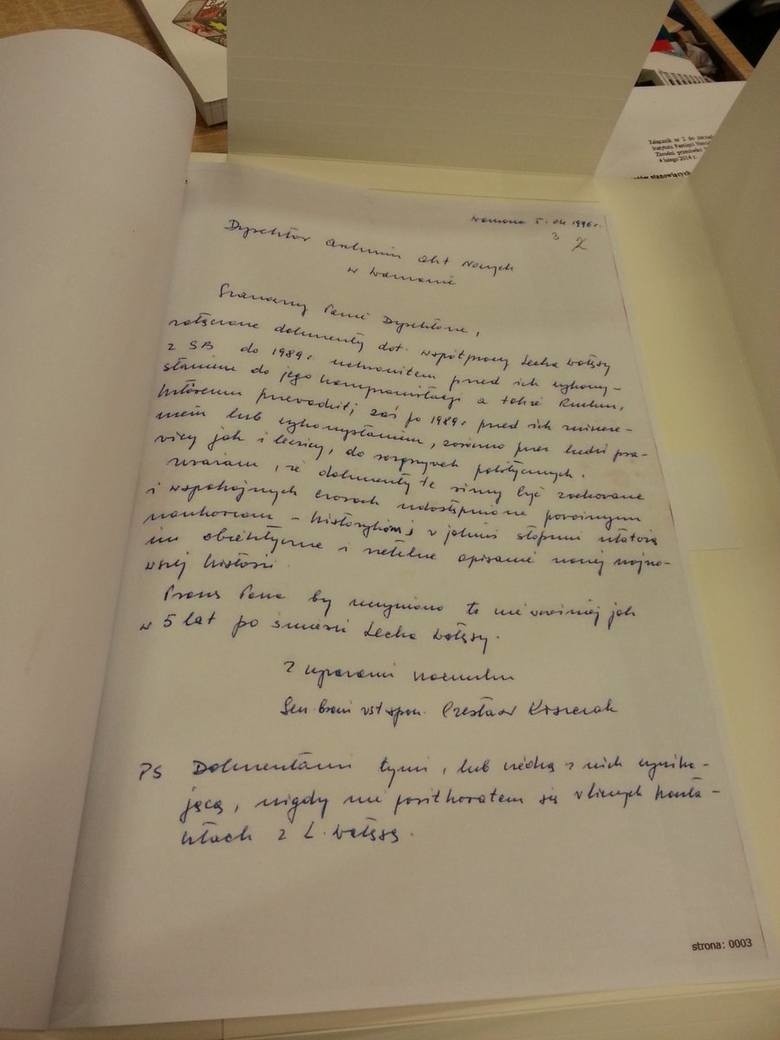 Warszawa 5. 04 1996 r.
3 2
Dyrektor Archiwum Akt Nowych
w Warszawie
Szanowny Panie Dyrektorze,
załączone dokumenty dot. współpracy Lecha Wałęsy
z SB do 1989 r. uchroniłem przed ich wykorzy-
staniem do jego kompromitacji a także Ruchu,
któremu przewodził; zaś po 1989 r przed ich zniszcze-
niem lub wykorzystaniem, zarówno przez ludzi pra-
wicy jak i lewicy, do rozgrywek politycznych.
Uważam, że dokumenty te winny być zachowane
i w spokojnych czasach udostępnione poważnym
naukowcom - historykom i w jakimś stopniu ułatwią
im obiektywne i rzetelne opisanie naszej najno-
wszej historii.
Proszę Pana by uczyniono to nie wcześniej jak
w 5 lat po śmierci Lecha Wałęsy.
Z wyrazami szacunku
Gen. broni w st. spocz. Czesław Kiszczak
PS Dokumentami tymi, lub wiedzą z nich wynika-
jącą, nigdy nie posłużyłem się w licznych konta-
ktach z L. Wałęsą.
strona: 0003
Załącznik nr 2 do
Instytutu Pamięci
4 lutego 2014 r.
stanowiących